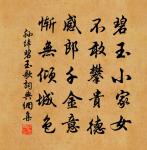 碧玉小家女
不敢攀貴德
感郎千金意
慚無傾城色
孫綽碧玉歌詞典網集